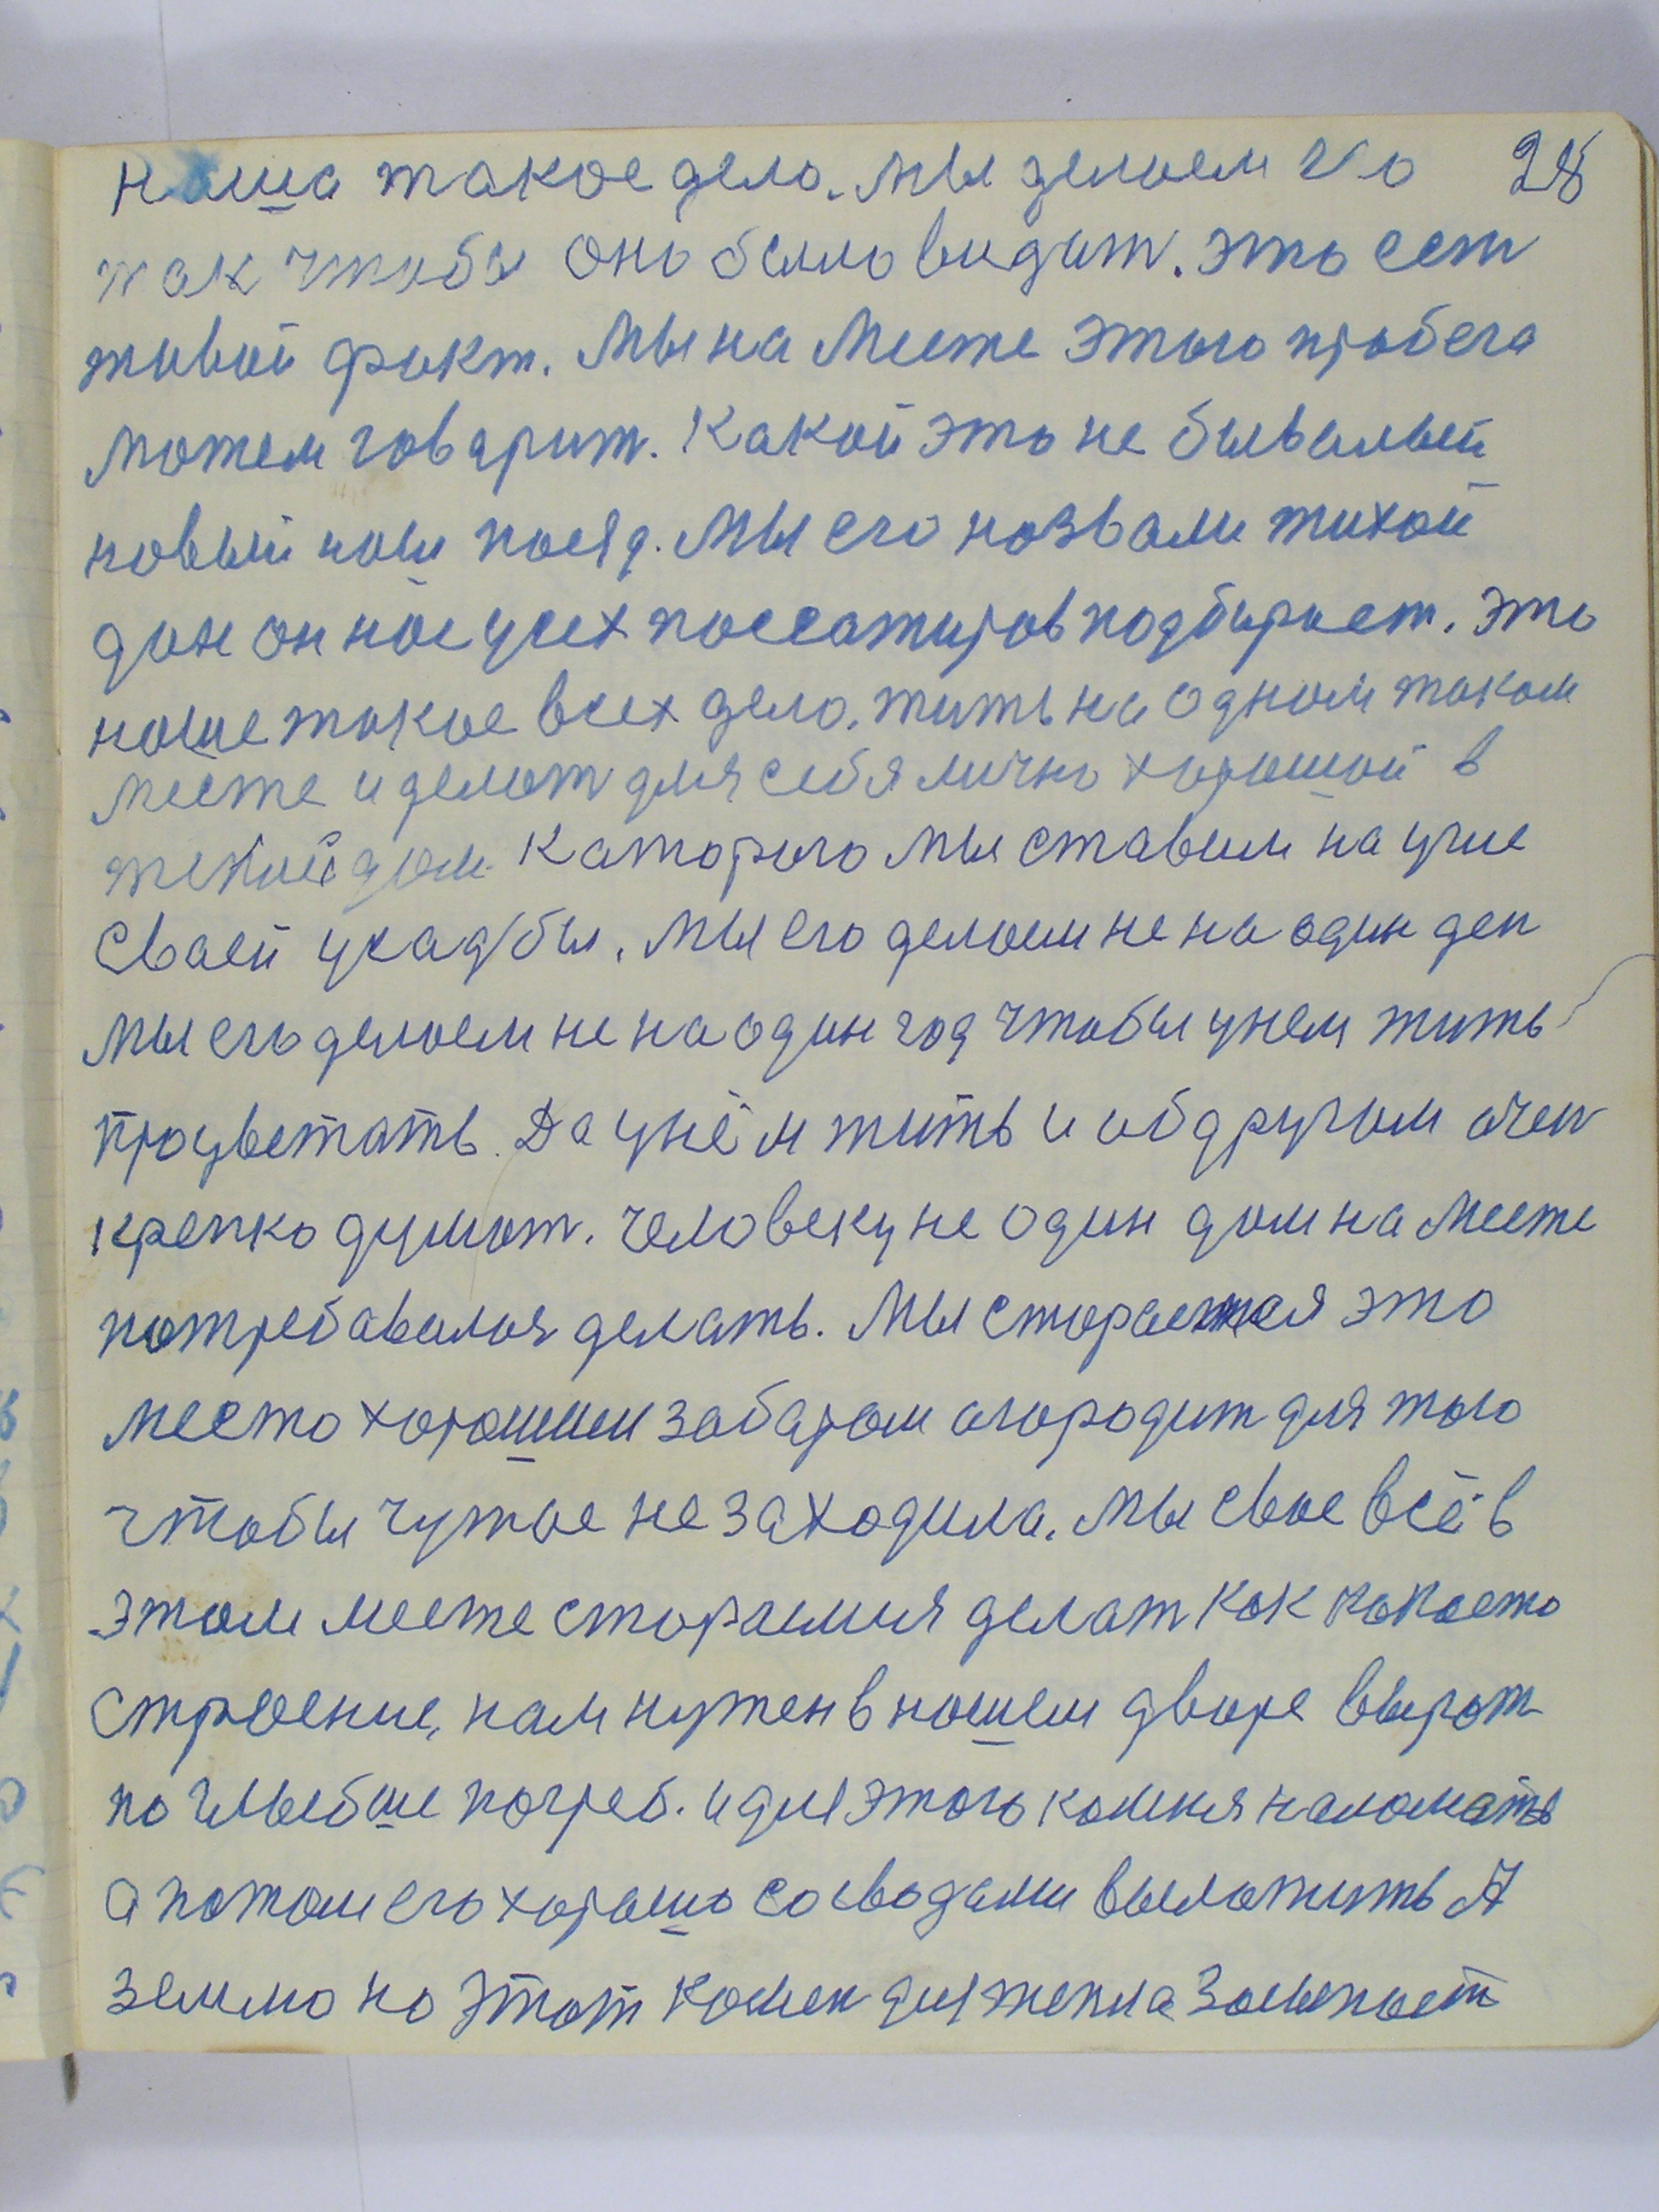 наша такое дело. мы делаем его 28
так чтобы оно было видат. это ест
живой факт. Мы на Месте этого пробега
можем говарит. Какой это не бывалый
новый наш поезд. Мы его назвали тихой
дон он нас усех пассажиров подбирает. это
наше такое всех дело. жить на одном таком
месте и делат для себя лично хороший в
жизни дом. Каторого мы ставим на угле
Сваей усадбы. Мы его делаем не на один ден
мы его делаем не на один год чтобы у нем жить
процветать. Да у нём жить и об другим очен
крепко думат. человеку не один дом на Месте
потребавался делать. Мы стораемся это
место хорошим забаром огородит для того
чтобы чужое не заходила. Мы свое всё в
этом месте стораемся делат как какоето
строение, нам нужен в нашем дворе вырат
по глыбше погреб. и для этого камня наломать
а потом его хорошо со сводами выложить А
землю на этот камен для тепла засыпает